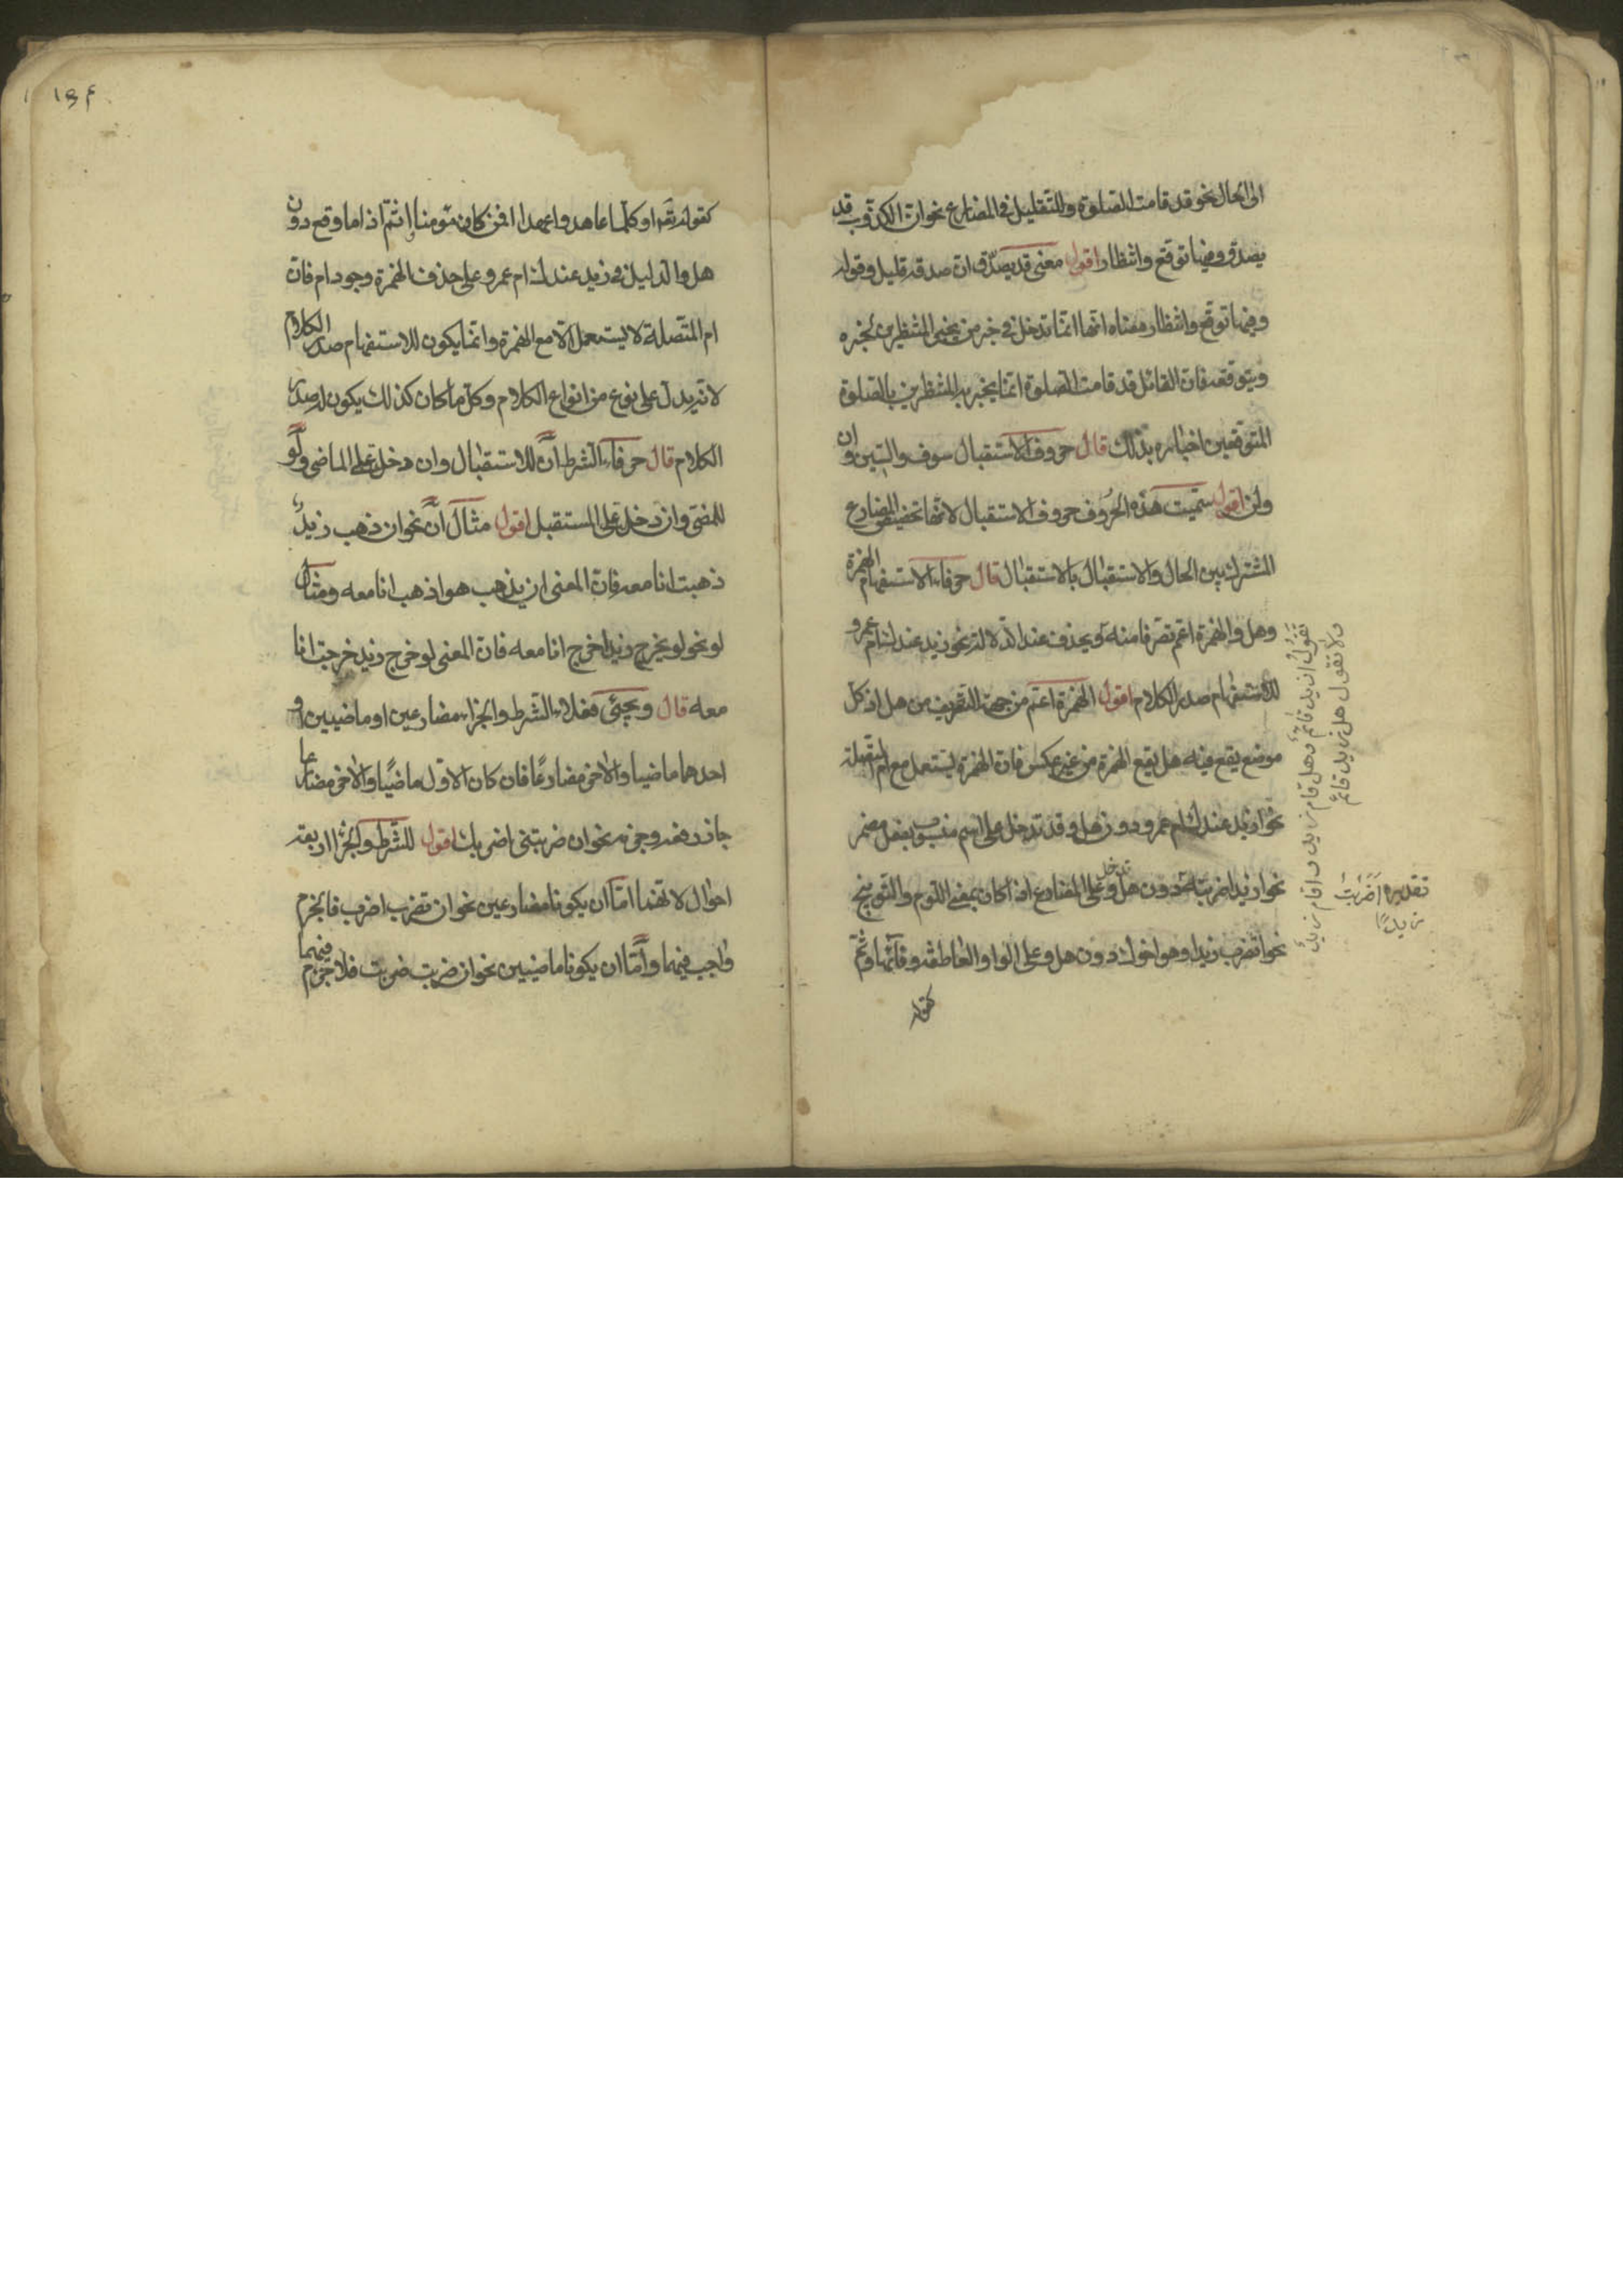 الى الحال نحو قد قامت الصلوة والتقليل فى المضارع نحو ان الكذوب قد
يصدق وفيها توقع وانتظار اقول معنى قد يصدق ان صدقه قليل وقوله
وفيها توقع وانتظار معناه انها انما تدخل فى خبر من يخبر المنتظرين بخبره
ويتوقعه فان القائل قد قامت الصلوة انما يخبر به المنتظرين بالصلوة
المتوقعين اخباره بذلك قال حروف الاستقبال سوف والسين وان
ولن اقول سميت هذه الحروف حروف الاستقبال لانها تخصيص المضارع
المشترك بين الحال والاستقبال بالاستقبال قال حرفا الاستفهام الهمزة
وهل والهمزة اعم تصرفا منه ويحذف عند الدلالة نحو زيد عندك ام عمرو
للاستفهام صدر الكلام اقول الهمزة اعم من جهة التصريف من هل اذ كل
موضع يقع فيه هل يقع الهمزة من غير عكس فان الهمزة يستعمل مع ام المتصلة
نحو ازيد عندك ام عمرو دون هل وقد تدخل على اسم منصوب بفعل مضمر
نحو ازيدا ضربته دون هل وتدخل على المضارع اذا كان بمعنى اللوم والتوبيخ
نحو اتضرب زيدا وهو اخوك دون هل وعلى الواو العاطفة وفائها وثم
كقوله
تقول ازيد قائم وهل قام زيد واقام زيد
ولا تقول هل زيد قائم
تقديره اضربت
زيدا
١٥٤
كقوله تعـ اوكلما عاهدوا عهدا افمن كان مؤمنا اثم اذا ما وقع دون
هل والدليل فى زيد عندك ام عمرو على حذف الهمزة وجود ام فان
ام المتصلة لا يستعمل الا مع الهمزة وانما يكون للاستفهام صدر الكلام
لانه يدل على نوع من انواع الكلام وكل ما كان كذلك يكون له صدر
الكلام قال حرفا الشرط ان للاستقبال وان دخل على الماضى ولو
للمضى وان دخل على المستقبل اقول مثال ان نحو ان ذهب زيد
ذهبت انا معه فان المعنى ان يذهب هو اذهب انا معه ومثال
لو نحو لو يخرج زيد اخرج انا معه فان المعنى لو خرج زيد خرجت انا
معه قال ويجئ فعلا الشرط والجزاء مضارعين او ماضيين او
احدهما ماضيا والاخر مضارعا فان كان الاول ماضيا والاخر مضارعا
جاز رفعه وجزمه نحو ان ضربتنى اضربك اقول للشرط والجزا اربعة
احوال لانهما اما ان يكونا مضارعين نحو ان تضرب اضرب فالجزم
واجب فيهما واما ان يكونا ماضيين نحو ان ضربت ضربت فلا جزم فيهما